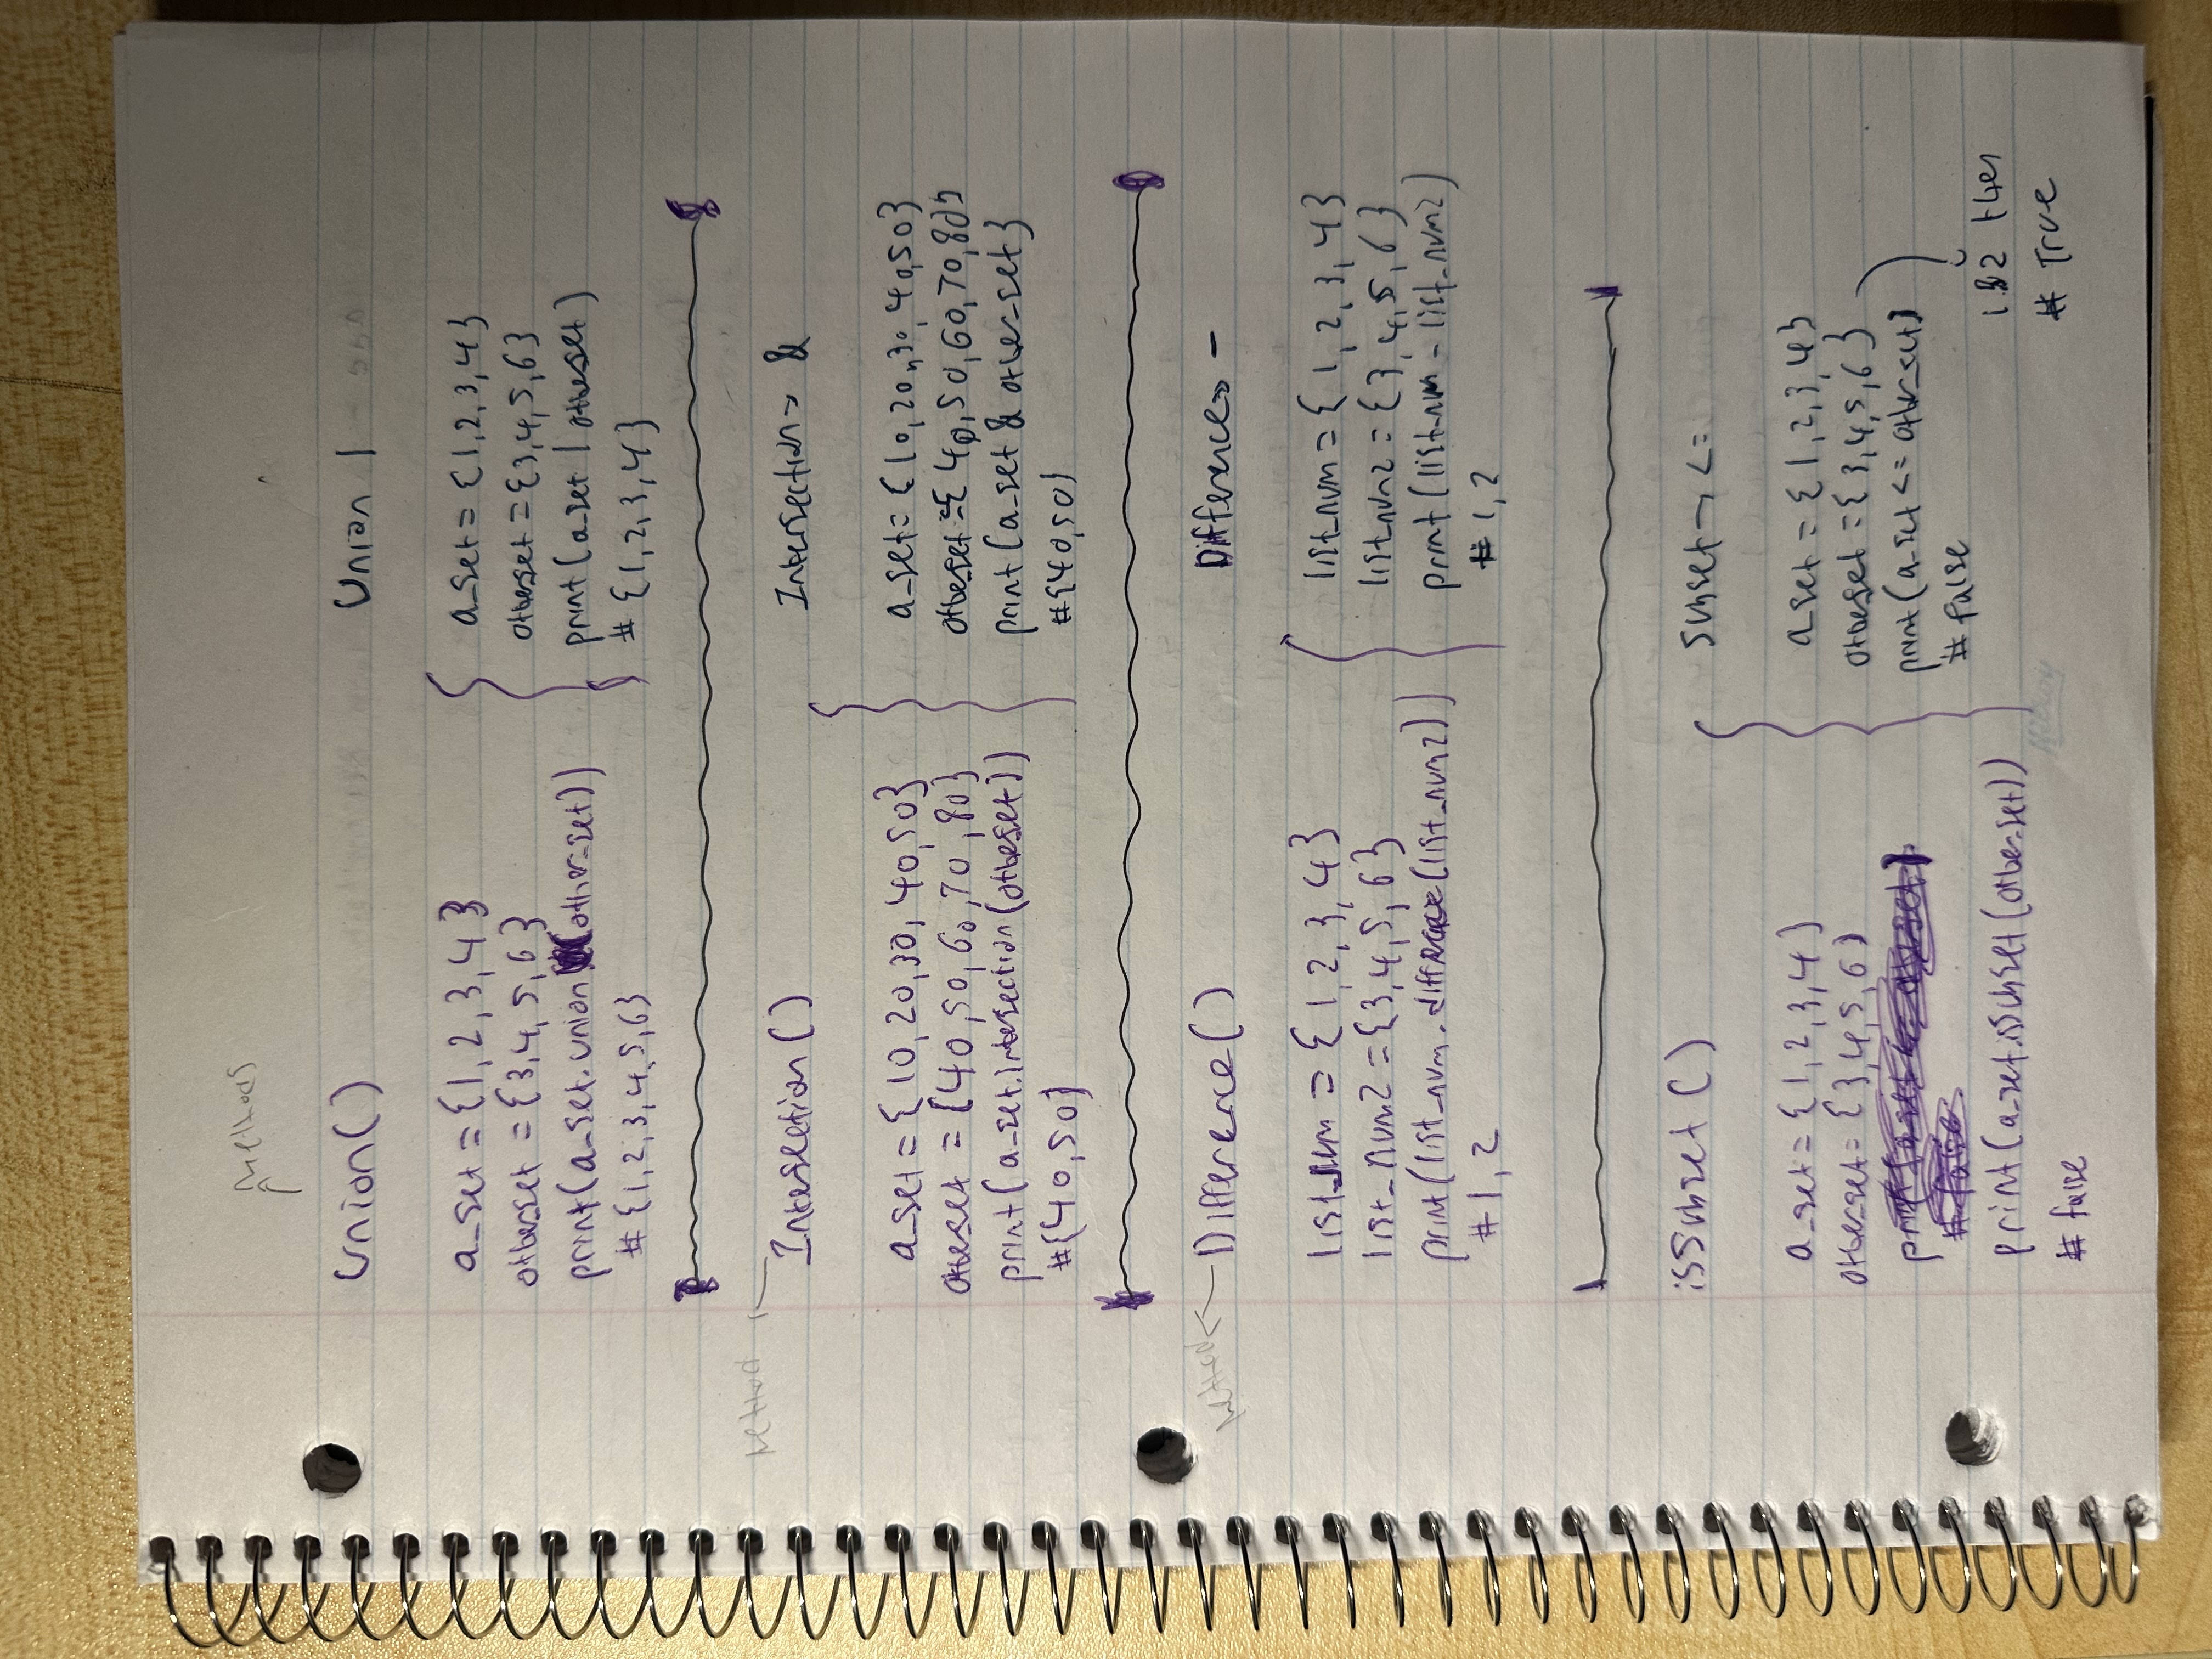 Methods
Union()
a_set = {1, 2, 3, 4}
other_set = {3, 4, 5, 6}
print(a_set.union(other_set))
# {1, 2, 3, 4, 5, 6}
Union |
a_set = {1, 2, 3, 4}
other_set = {3, 4, 5, 6}
print(a_set | other_set)
# {1, 2, 3, 4}
Method
Intersection()
a_set = {10, 20, 30, 40, 50}
other_set = {40, 50, 60, 70, 80}
print(a_set.intersection(other_set))
#{40, 50}
Intersection → &
a_set = {10, 20, 30, 40, 50}
other_set = { 40, 50, 60, 70, 80}
print(a_set & other_set}
#{40, 50}
Method
Difference()
list_num = {1, 2, 3, 4}
list_num2 = {3, 4, 5, 6}
print(list_num.difference(list_num2))
# 1, 2
Difference → -
list_num = {1, 2, 3, 4}
list_num2 = {3, 4, 5, 6}
print(list_num - list_num2)
# 1, 2
isSubset()
a_set = {1, 2, 3, 4}
other_set = {3, 4, 5, 6}
print(a_set.isSubset(other_set))
# false
Subset → <=
a_set = {1, 2, 3, 4}
other_set = {3, 4, 5, 6}
print(a_set <= other_set)
# false
then
# True
Hilroy